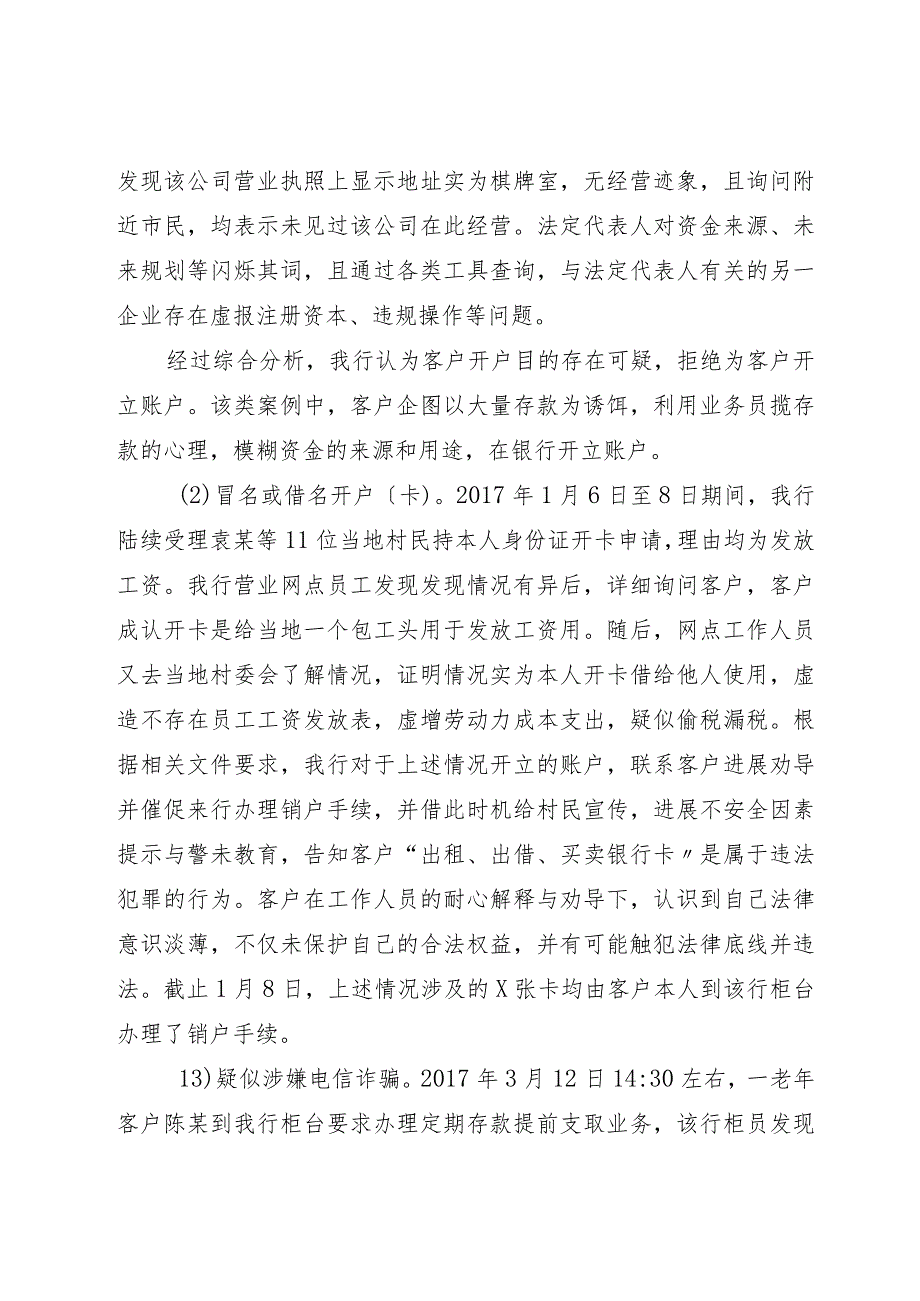 发现该公司营业执照上显示地址实为棋牌室，无经营迹象，且询问附
近市民，均表示未见过该公司在此经营。法定代表人对资金来源、未
来规划等闪烁其词，且通过各类工具查询，与法定代表人有关的另一
企业存在虚报注册资本、违规操作等问题。
经过综合分析，我行认为客户开户目的存在可疑，拒绝为客户开
立账户。该类案例中，客户企图以大量存款为诱饵，利用业务员揽存
款的心理，模糊资金的来源和用途，在银行开立账户。
(2)冒名或借名开户〔卡)。2017 年 1 月 6 日至 8 日期间，我行
陆续受理袁某等 11 位当地村民持本人身份证开卡申请,理由均为发放
工资。我行营业网点员工发现发现情况有异后，详细询问客户，客户
成认开卡是给当地一个包工头用于发放工资用。随后，网点工作人员
又去当地村委会了解情况，证明情况实为本人开卡借给他人使用，虚
造不存在员工工资发放表，虚增劳动力成本支出，疑似偷税漏税。根
据相关文件要求，我行对于上述情况开立的账户，联系客户进展劝导
并催促来行办理销户手续，并借此时机给村民宣传，进展不安全因素
提示与警未教育，告知客户“出租、出借、买卖银行卡〃是属于违法
犯罪的行为。客户在工作人员的耐心解释与劝导下，认识到自己法律
意识淡薄，不仅未保护自己的合法权益，并有可能触犯法律底线并违
法。截止 1 月 8 日，上述情况涉及的 X 张卡均由客户本人到该行柜台
办理了销户手续。
13)疑似涉嫌电信诈骗。2017 年 3 月 12 日 14:30 左右，一老年
客户陈某到我行柜台要求办理定期存款提前支取业务，该行柜员发现